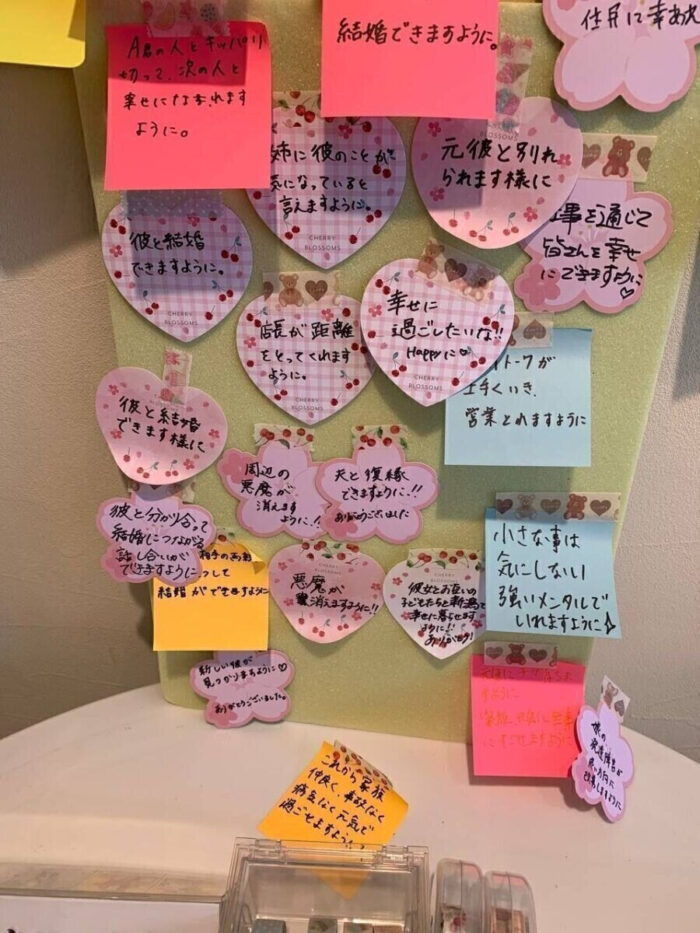 A君の人とキッパリ
切って、次の人と
幸せになれます
ように。
結婚できますように。
仕事に幸あれ
姉に彼のことが
気になっていると
言えますように。
CHERRY
BLOSSOMS
BLOSSOMS
元彼と別れ
られます様に
事を通じて
皆さんを幸せ
にできますように♡
彼と結婚
できますように。
CHERRY
BLOSSOMS
店長が距離
をとってくれます
ように。
CHERRY
BLOSSOMS
幸せに
過ごしたいな!!
Happyに♡
CHERRY
BLOSSOMS
トークが
上手くいき、
営業とれますように
彼と結婚
できます様に
周辺の
悪魔が
消えます
ように!!
夫と復縁
できますように!!
ありがとうございました
彼と分かり合って
結婚につながる
話し合いが
できますように
相手の両親
して
結婚ができますように
悪魔が
消えますように!!
BLOSSOMS
彼女とお互いの
子どもたちと新潟で
幸せに暮らせます
ように!!
ありがとう!
小さな事は
気にしない
強いメンタルで
いれますように♪
新しい彼が
見つかりますように♡
ありがとうございました。
ように
家族
にすごせますように
娘の
発達障害が
良い方向に
改善しますように
これから家族
仲良く 事故なく
病気なく元気で
過ごせますように。